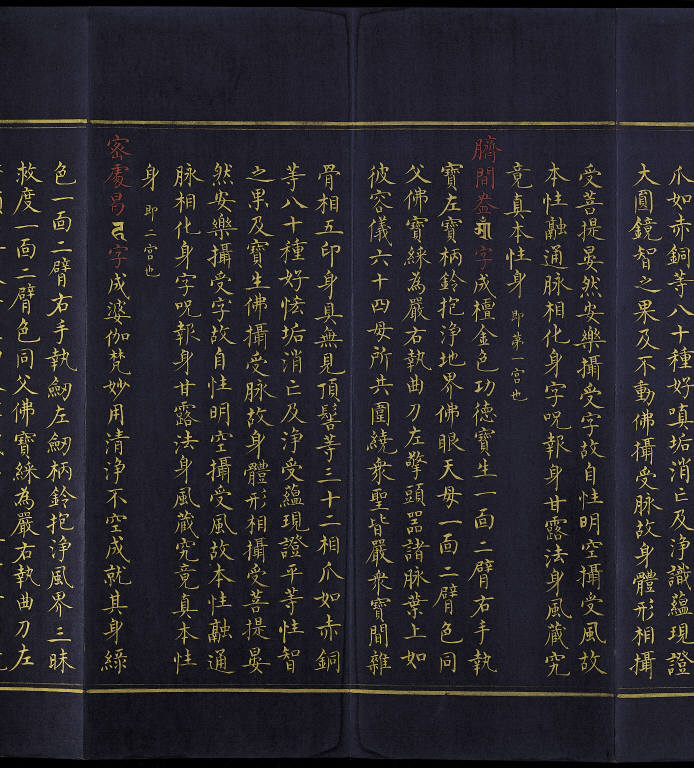 爪如赤銅等八十種好嗔垢消亡及淨識蘊現證
大圓鏡智之果及不動佛攝受脉故身體形相攝
受菩提晏然安樂攝受字故自性明空攝受風故
本性融通脉相化身字呪報身甘露法身風藏究
竟真本性身 即第一宮也
臍間𤙖字成檀金色功德寶生一面二臂右手執
寶左寶柄鈴抱淨地界佛眼天母一面二臂色同
父佛寶綵為嚴右執曲刀左擎頭器諸脉葉上如
彼容儀六十四母所共圍繞衆聖皆嚴衆寶間雜
骨相五印身具無見頂髻等三十二相爪如赤銅
等八十種好恡垢消亡及淨受蘊現證平等性智
之果及寶生佛攝受脉故身體形相攝受菩提晏
然安樂攝受字故自性明空攝受風故本性融通
脉相化身字呪報身甘露法身風藏究竟真本性
身 即二宮也
密處字成婆伽梵妙用清淨不空成就其身綠
色一面二臂右手執劒左劒柄鈴抱淨風界三昧
救度一面二臂色同父佛寶綵為嚴右執曲刀左